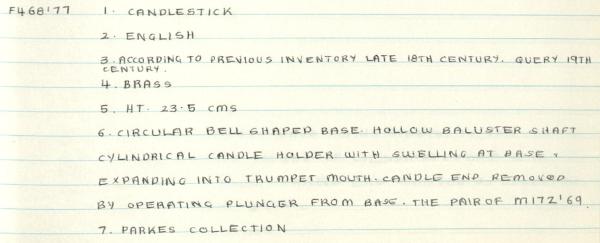 F468'77 1. CANDLESTICK
2. ENGLISH
3. ACCORDING TO PREVIOUS INVENTORY LATE 18TH CENTURY. QUERY 19TH
CENTURY.
4. BRASS
5. HT. 23.5 cms
6. CIRCULAR BELL SHAPED BASE. HOLLOW BALUSTER SHAFT
CYLINDRICAL CANDLE HOLDER WITH SWELLING AT BASE,
EXPANDING INTO TRUMPET MOUTH. CANDLE END REMOVED
BY OPERATING PLUNGER FROM BASE. THE PAIR OF M172'69
7. PARKES COLLECTION